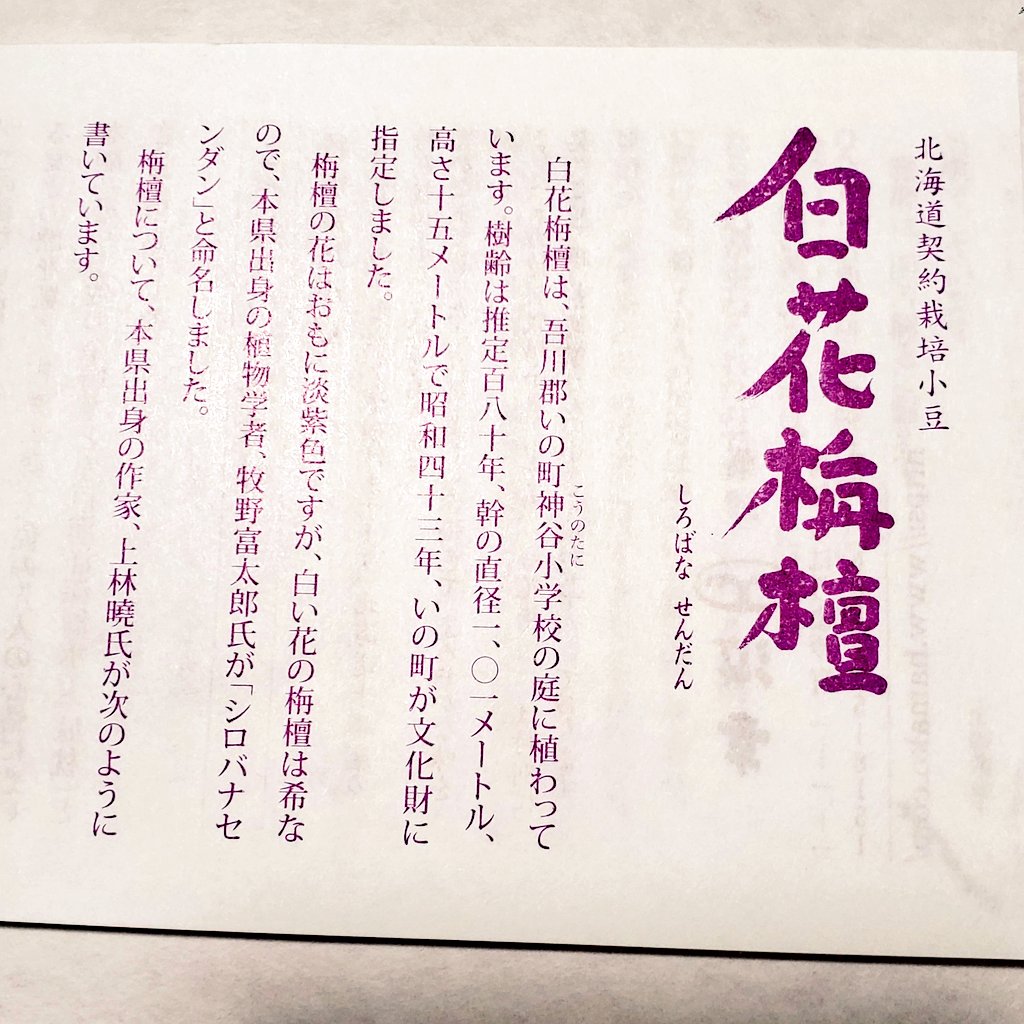 北海道契約栽培小豆
白花栴檀
しろばな せんだん
白花栴檀は、吾川郡いの町神谷小学校の庭に植わって
こうのたに
います。樹齢は推定百八十年、幹の直径一、〇一メートル、
高さ十五メートルで昭和四十三年、いの町が文化財に
指定しました。
栴檀の花はおもに淡紫色ですが、白い花の栴檀は希な
ので、本県出身の植物学者、牧野富太郎氏が「シロバナセ
ンダン」と命名しました。
栴檀について、本県出身の作家、上林曉氏が次のように
書いています。